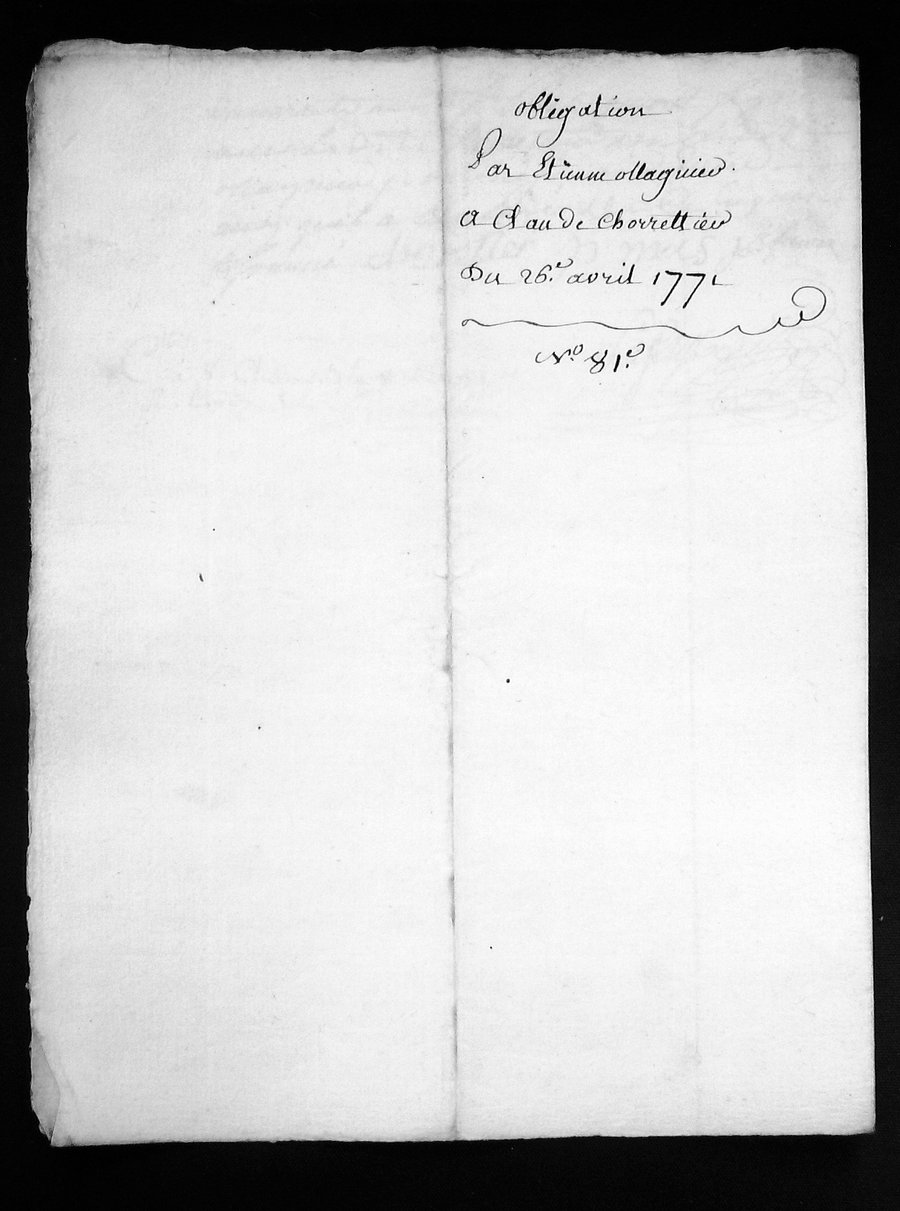 obligation
Par Etienne ollagnier.
a Claude Chorrettier
Du 26.e avril 1771
No. 81.e